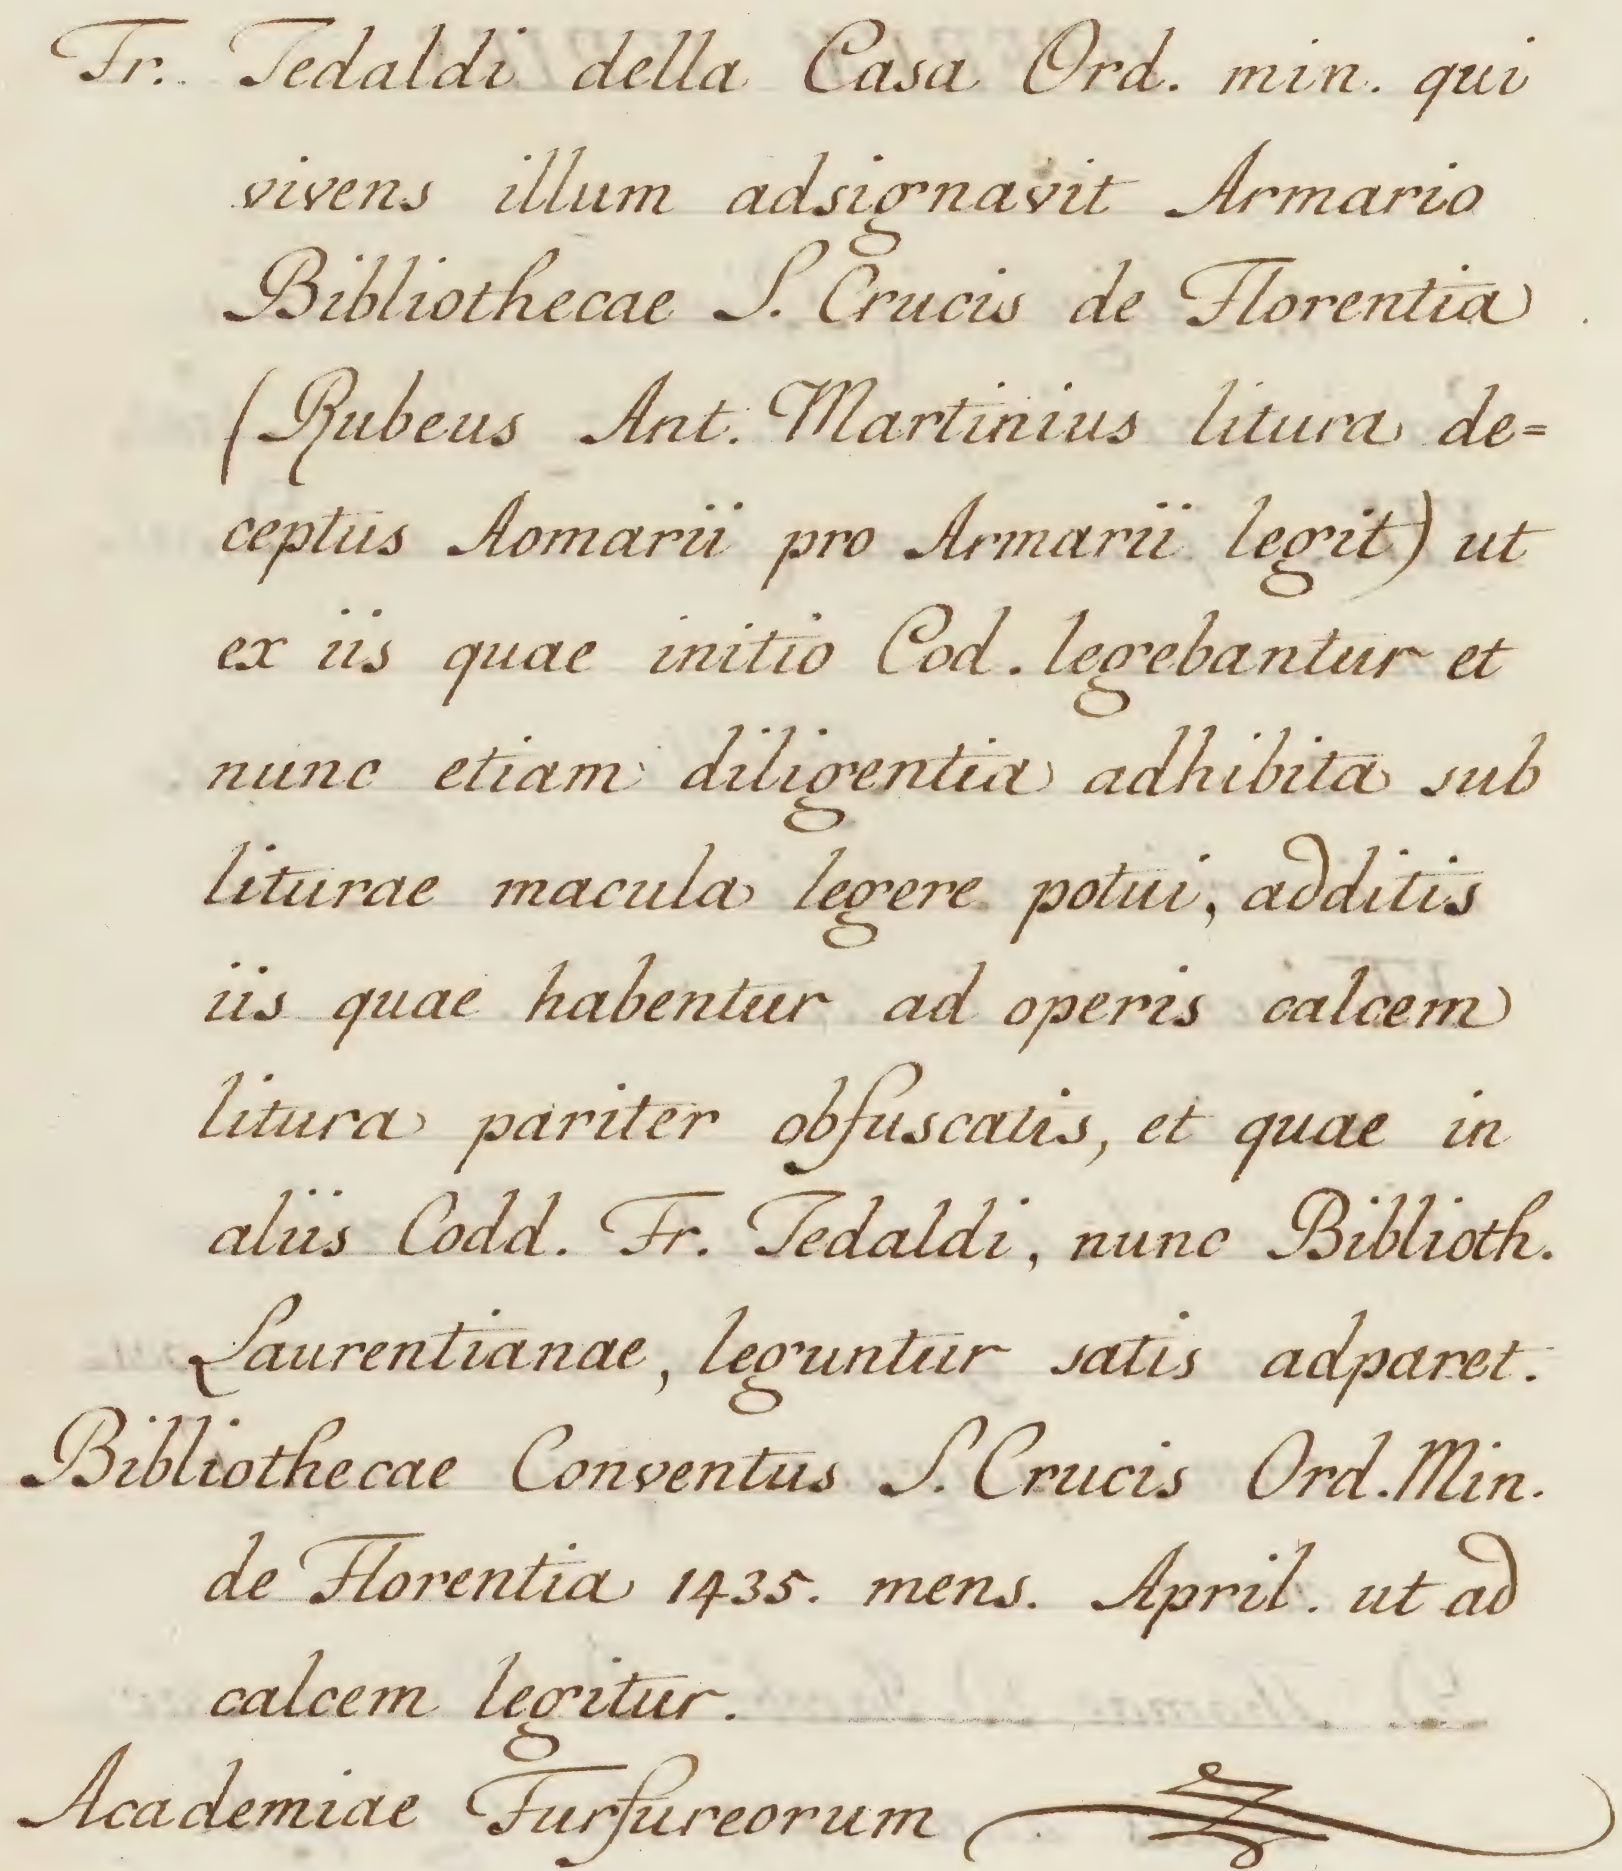 Fr. Tedaldi della Casa Ord. min. qui
vivens illum adsignavit Armario
Bibliothecae S. Crucis de Florentia
(Rubeus Ant. Martinius litura de=
ceptus Aomarii pro Armarii legit) ut
ex iis quae initio Cod. legebantur et
nunc etiam diligentia adhibita sub
liturae macula legere potui, additis
iis quae habentur ad operis calcem
litura pariter obfuscatis, et quae in
aliis Codd. Fr. Tedaldi, nunc Biblioth.
Laurentianae, leguntur satis adparet.
Bibliothecae Conventus S. Crucis Ord. Min.
de Florentia 1435. mens. April. ut ad
calcem legitur.
Academiae Furfureorum